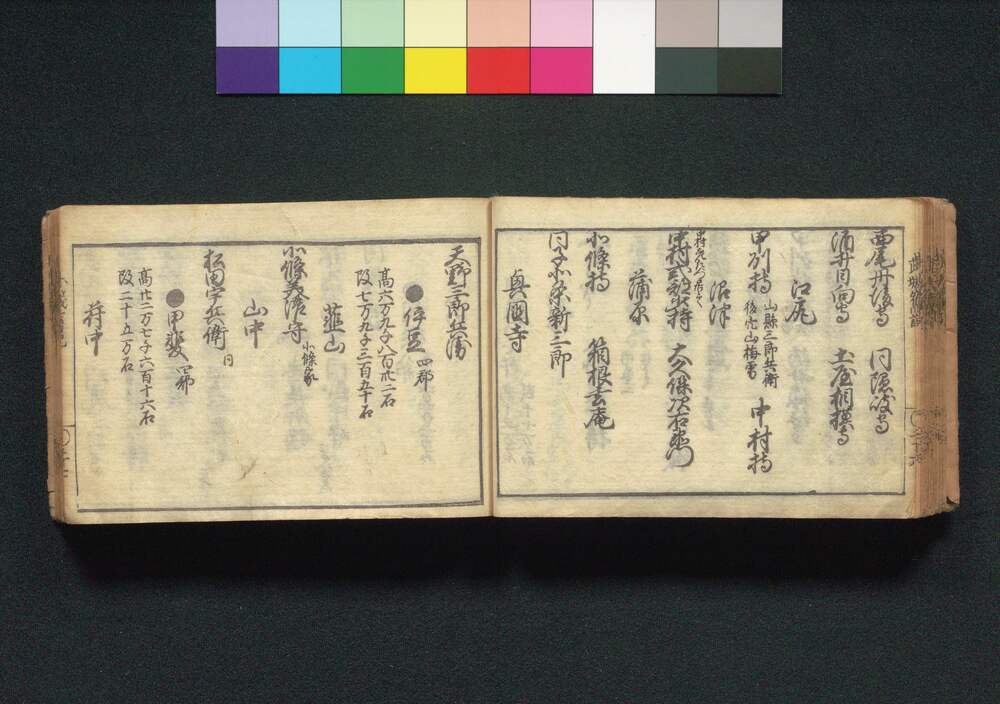 西尾丹後守　同隠岐守
酒井日向守　土屋相摸守
江尻
甲州持　山縣三郎兵衛
後穴山梅雪　中村持
沼津
中村式部少輔持　大久保次右衛門
蒲原
北條持　箱根玄庵
同子小笠原新三郎
興國寺
天野三郎兵衛
●伊豆　四郡
高六万九千八百卅二石
改七万九千三百五十石
韮山
北條美濃守　小條家
山中
松田字兵衛　同
●甲斐　四郡
高廿二万七千六百十六石
改二十五万石
府中